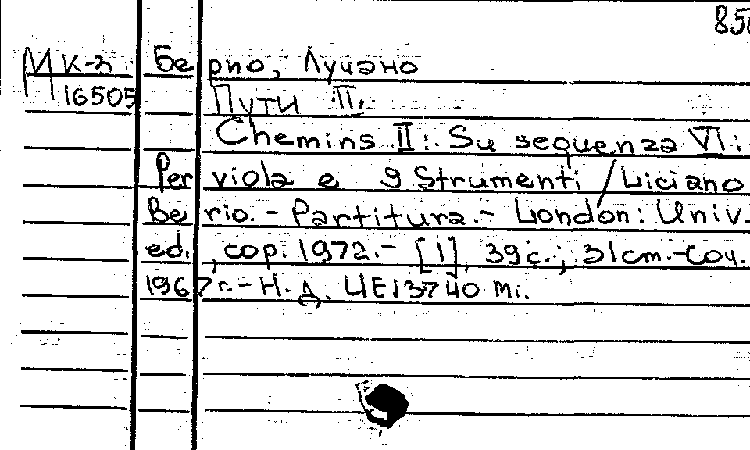 850
М К-2 Берио, Лучано
16505 Пути II.
Chemins II: Su sequenza VI:
Per viola e 9 Strumenti / Luciano
Berio. - Partitura. - London: Univ.
ed., cop. 1972. - [1], 39 с.; 31 cm. - Соч.
1967 г. - Н. д. UE13740 Mi.